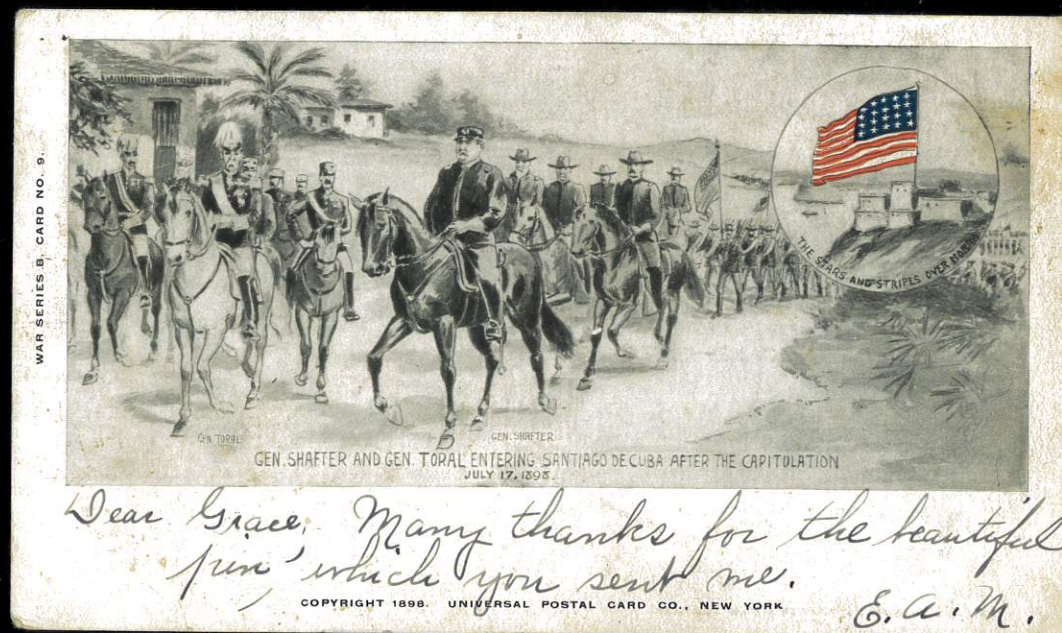 WAR SERIES B. CARD NO. 9.
THE STARS AND STRIPES OVER MORRO
GEN. TORAL
GEN. SHAFTER
GEN. SHAFTER AND GEN. TORAL ENTERING SANTIAGO DE CUBA AFTER THE CAPITULATION
JULY 17, 1898.
Dear Grace, Many thanks for the beautiful
pin, which you sent me.
E. A. M.
COPYRIGHT 1898. UNIVERSAL POSTAL CARD CO., NEW YORK